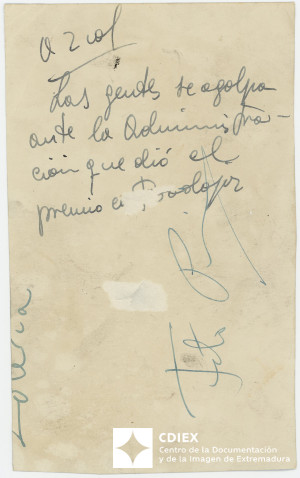 a 2 col
Las gentes se agolpa
ante la Adminis tra-
ción que dió el
premio en Badajoz
Lotería
CDIEX
Centro de la Documentación
y de la Imagen de Extremadura